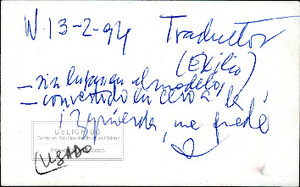 W. 13-2-94 Traductor
(Exilio)
— sin lugar en el modelo,
— convertido en cero a la
izquierda, me quedé
CELICH UC
USADO